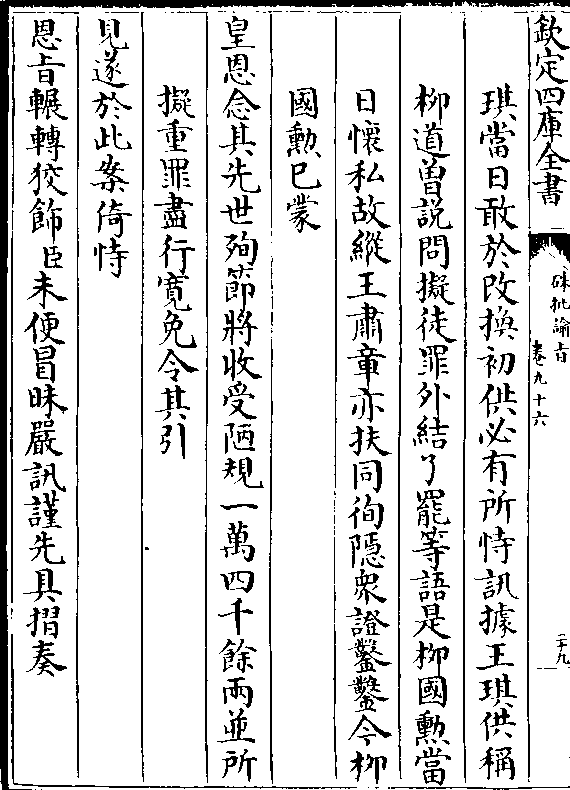 欽定四庫全書
硃批諭旨
卷九十六
二十九
琪當日敢於改換初供必有所恃訊據王琪供稱
柳道曽説問擬徒罪外結了罷等語是柳國勲當
日懷私故縱王肅章亦扶同徇隱衆證鑿鑿今柳
國勲已蒙
皇恩念其先世殉節將收受陋規一萬四千餘兩並所
擬重罪盡行寛免令其引
見遂於此案倚恃
恩旨輾轉狡飾臣未便冒昧嚴訊謹先具摺奏